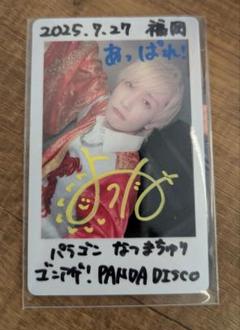 2025.7.27 福岡
あっぱれ!
パラゴン なつまちゅり
ゴニアゲ! PANDA DISCO